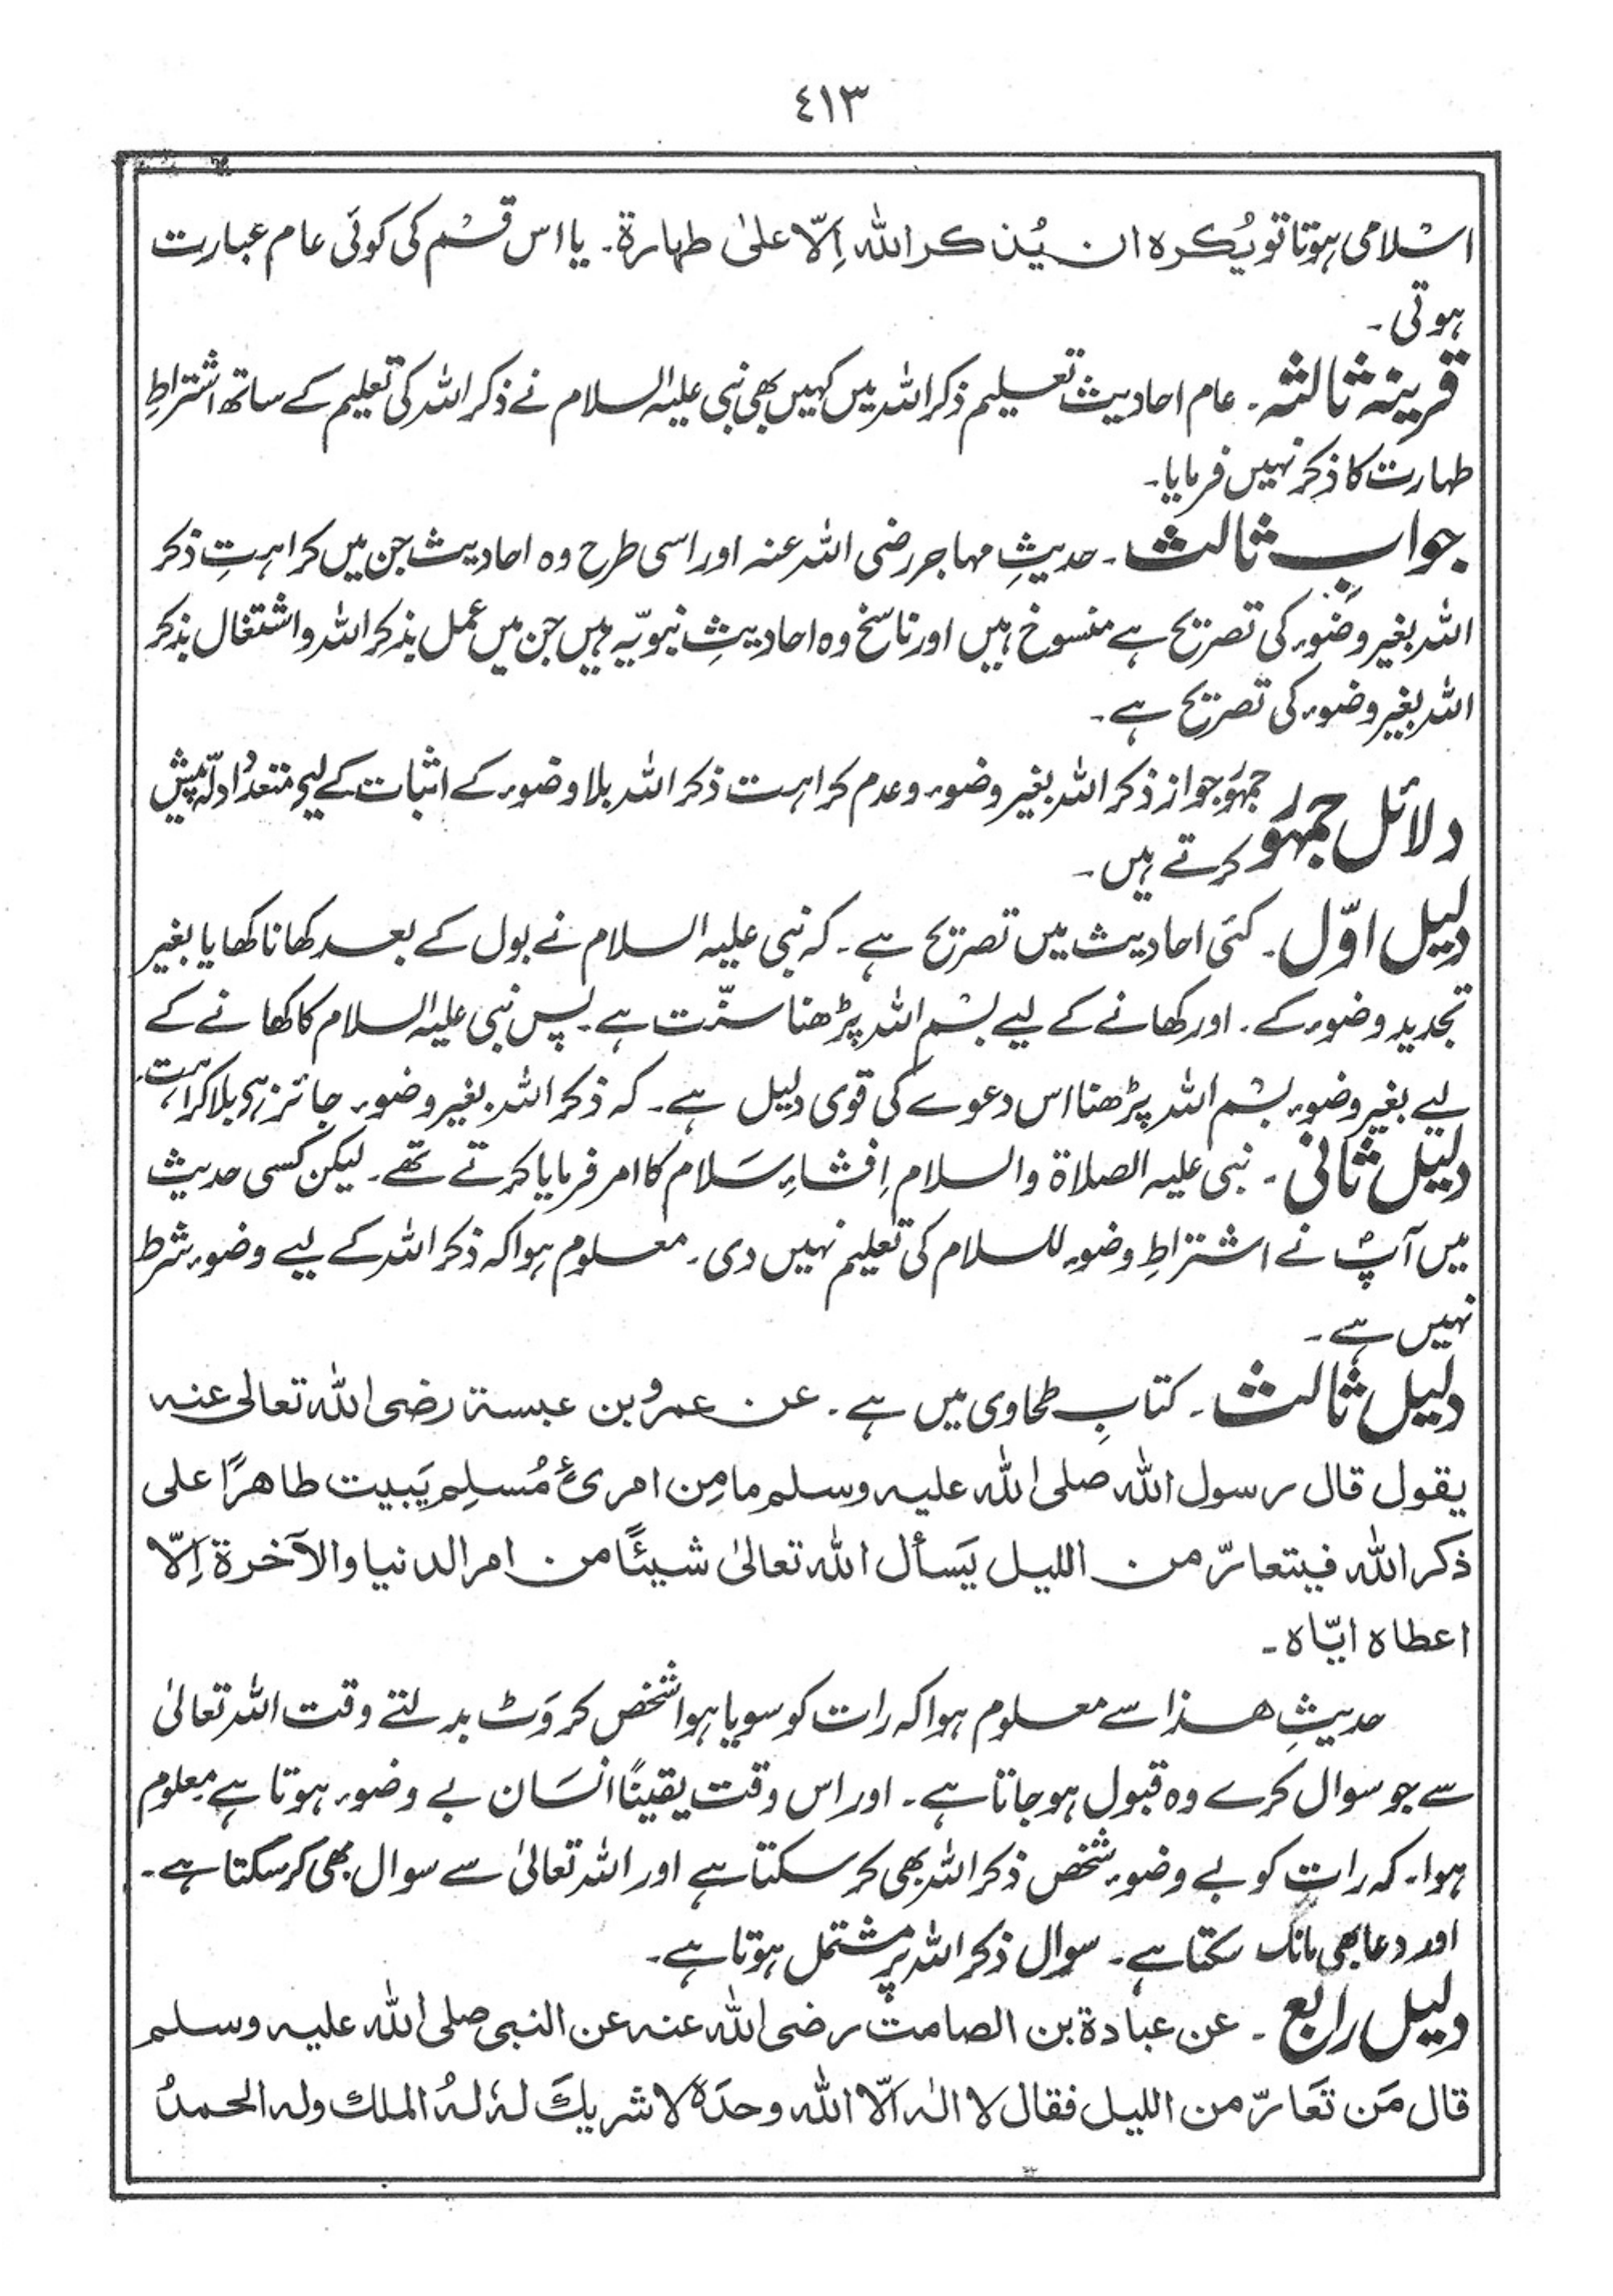 ٤١٣
اسلامی ہوتا تو یُکرہ ان یُذکر اللہ اِلّا علیٰ طہارۃ۔ یا اس قسم کی کوئی عام عبارت
ہوتی۔
قرینہ ثالثہ۔ عام احادیث تعلیم ذکر اللہ میں کہیں بھی نبی علیہ السلام نے ذکر اللہ کی تعلیم کے ساتھ اشتراطِ
طہارت کا ذکر نہیں فرمایا۔
جواب ثالث۔ حدیثِ مہاجر رضی اللہ عنہ اور اسی طرح وہ احادیث جن میں کراہتِ ذکر
اللہ بغیر وضوء کی تصریح ہے منسوخ ہیں اور ناسخ وہ احادیثِ نبویّہ ہیں جن میں عمل بذکر اللہ و اشتغال بذکر
اللہ بغیر وضوء کی تصریح ہے۔
دلائل جمہور جمہور جواز ذکر اللہ بغیر وضوء و عدم کراہت ذکر اللہ بلا وضوء کے اثبات کے لیے متعدد ادلّہ پیش
کرتے ہیں۔
دلیل اوّل۔ کئی احادیث میں تصریح ہے۔ کہ نبی علیہ السلام نے بول کے بعد کھانا کھایا بغیر
تجدید وضوء کے۔ اور کھانے کے لیے بسم اللہ پڑھنا سنّت ہے۔ پس نبی علیہ السلام کا کھانے کے
لیے بغیر وضوء بسم اللہ پڑھنا اس دعوے کی قوی دلیل ہے۔ کہ ذکر اللہ بغیر وضوء جائز ہے بلا کراہت۔
دلیل ثانی۔ نبی علیہ الصلاۃ والسلام اِفشاءِ سَلام کا امر فرمایا کرتے تھے۔ لیکن کسی حدیث
میں آپؐ نے اشتراطِ وضوء للسلام کی تعلیم نہیں دی۔ معلوم ہوا کہ ذکر اللہ کے لیے وضوء شرط
نہیں ہے۔
دلیل ثالث۔ کتابِ طحاوی میں ہے۔ عن عمرو بن عبسۃ رضی اللہ تعالی عنہ
یقول قال رسول اللہ صلی اللہ علیہ وسلم ما مِن امرئٍ مُسلِم یَبیت طاھرًا علی
ذکر اللہ فیتعارّ من اللیل یَسأل اللہ تعالیٰ شیئًا من امر الدنیا والآخرۃ اِلّا
اعطاہ ایّاہ۔
حدیثِ ھذا سے معلوم ہوا کہ رات کو سویا ہوا شخص کروَٹ بدلتے وقت اللہ تعالیٰ
سے جو سوال کرے وہ قبول ہو جاتا ہے۔ اور اس وقت یقینًا انسَان بے وضوء ہوتا ہے معلوم
ہوا۔ کہ رات کو بے وضوء شخص ذکر اللہ بھی کر سکتا ہے اور اللہ تعالیٰ سے سوال بھی کر سکتا ہے۔
اور دعا بھی مانگ سکتا ہے۔ سوال ذکر اللہ پر مشتمل ہوتا ہے۔
دلیل رابع۔ عن عبادۃ بن الصامت رضی اللہ عنہ عن النبی صلی اللہ علیہ وسلم
قال مَن تَعَارّ من اللیل فقال لا الٰہ اِلّا اللہ وحدَہٗ لا شریكَ لہٗ لہُ الملك ولہ الحمدُ